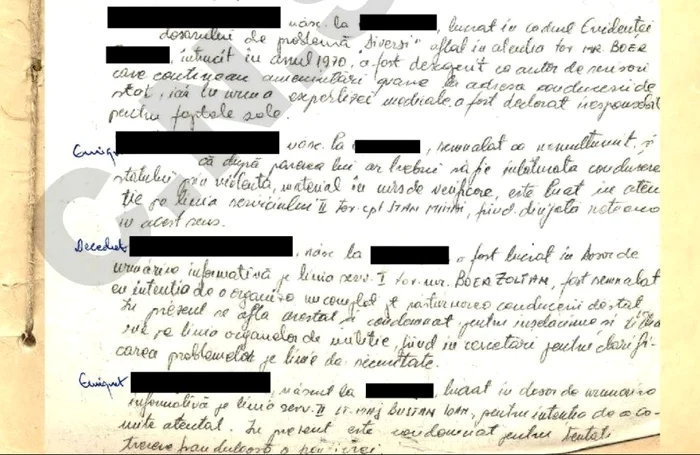 născ. la , lucrat în cadrul Evidenței
dosarului de problemă "diverși" aflat în atenția tov mr. BOER
, întocmit în anul 1970, a fost descoperit ca autor de scrisori
care conțineau amenințări grave la adresa conducerii de
stat, iar în urma expertizei medicale a fost declarat iresponsabil
pentru faptele sale.
Emigrat născ. la , semnalat ca nemulțumit, și
că după părerea lui ar trebui să fie înlăturată conducerea
statului prin violență, material în curs de verificare, este luat în aten
ție pe linia serviciului II tov. cpt STAN MIHAI, fiind dirijată rețeaua
în acest sens.
Decedat , născ la , a fost lucrat în dosar de
urmărire informativă pe linia serv. I tov. mr. BOER ZOLTAN, fost semnalat
cu intenția de a organiza un complot pt. răsturnarea conducerii de stat
În prezent se află arestat și condamnat pentru înșelăciune și
pe linia organelor de miliție, fiind în cercetări pentru clarifi
carea problemelor pe linie de securitate.
Emigrat , născut la , lucrat în dosar de urmărire
informativă pe linia serv. II lt. maj BUSTAN IOAN, pentru intenția de a co
mite atentat. În prezent este condamnat pentru tentativă
trecere frauduloasă a